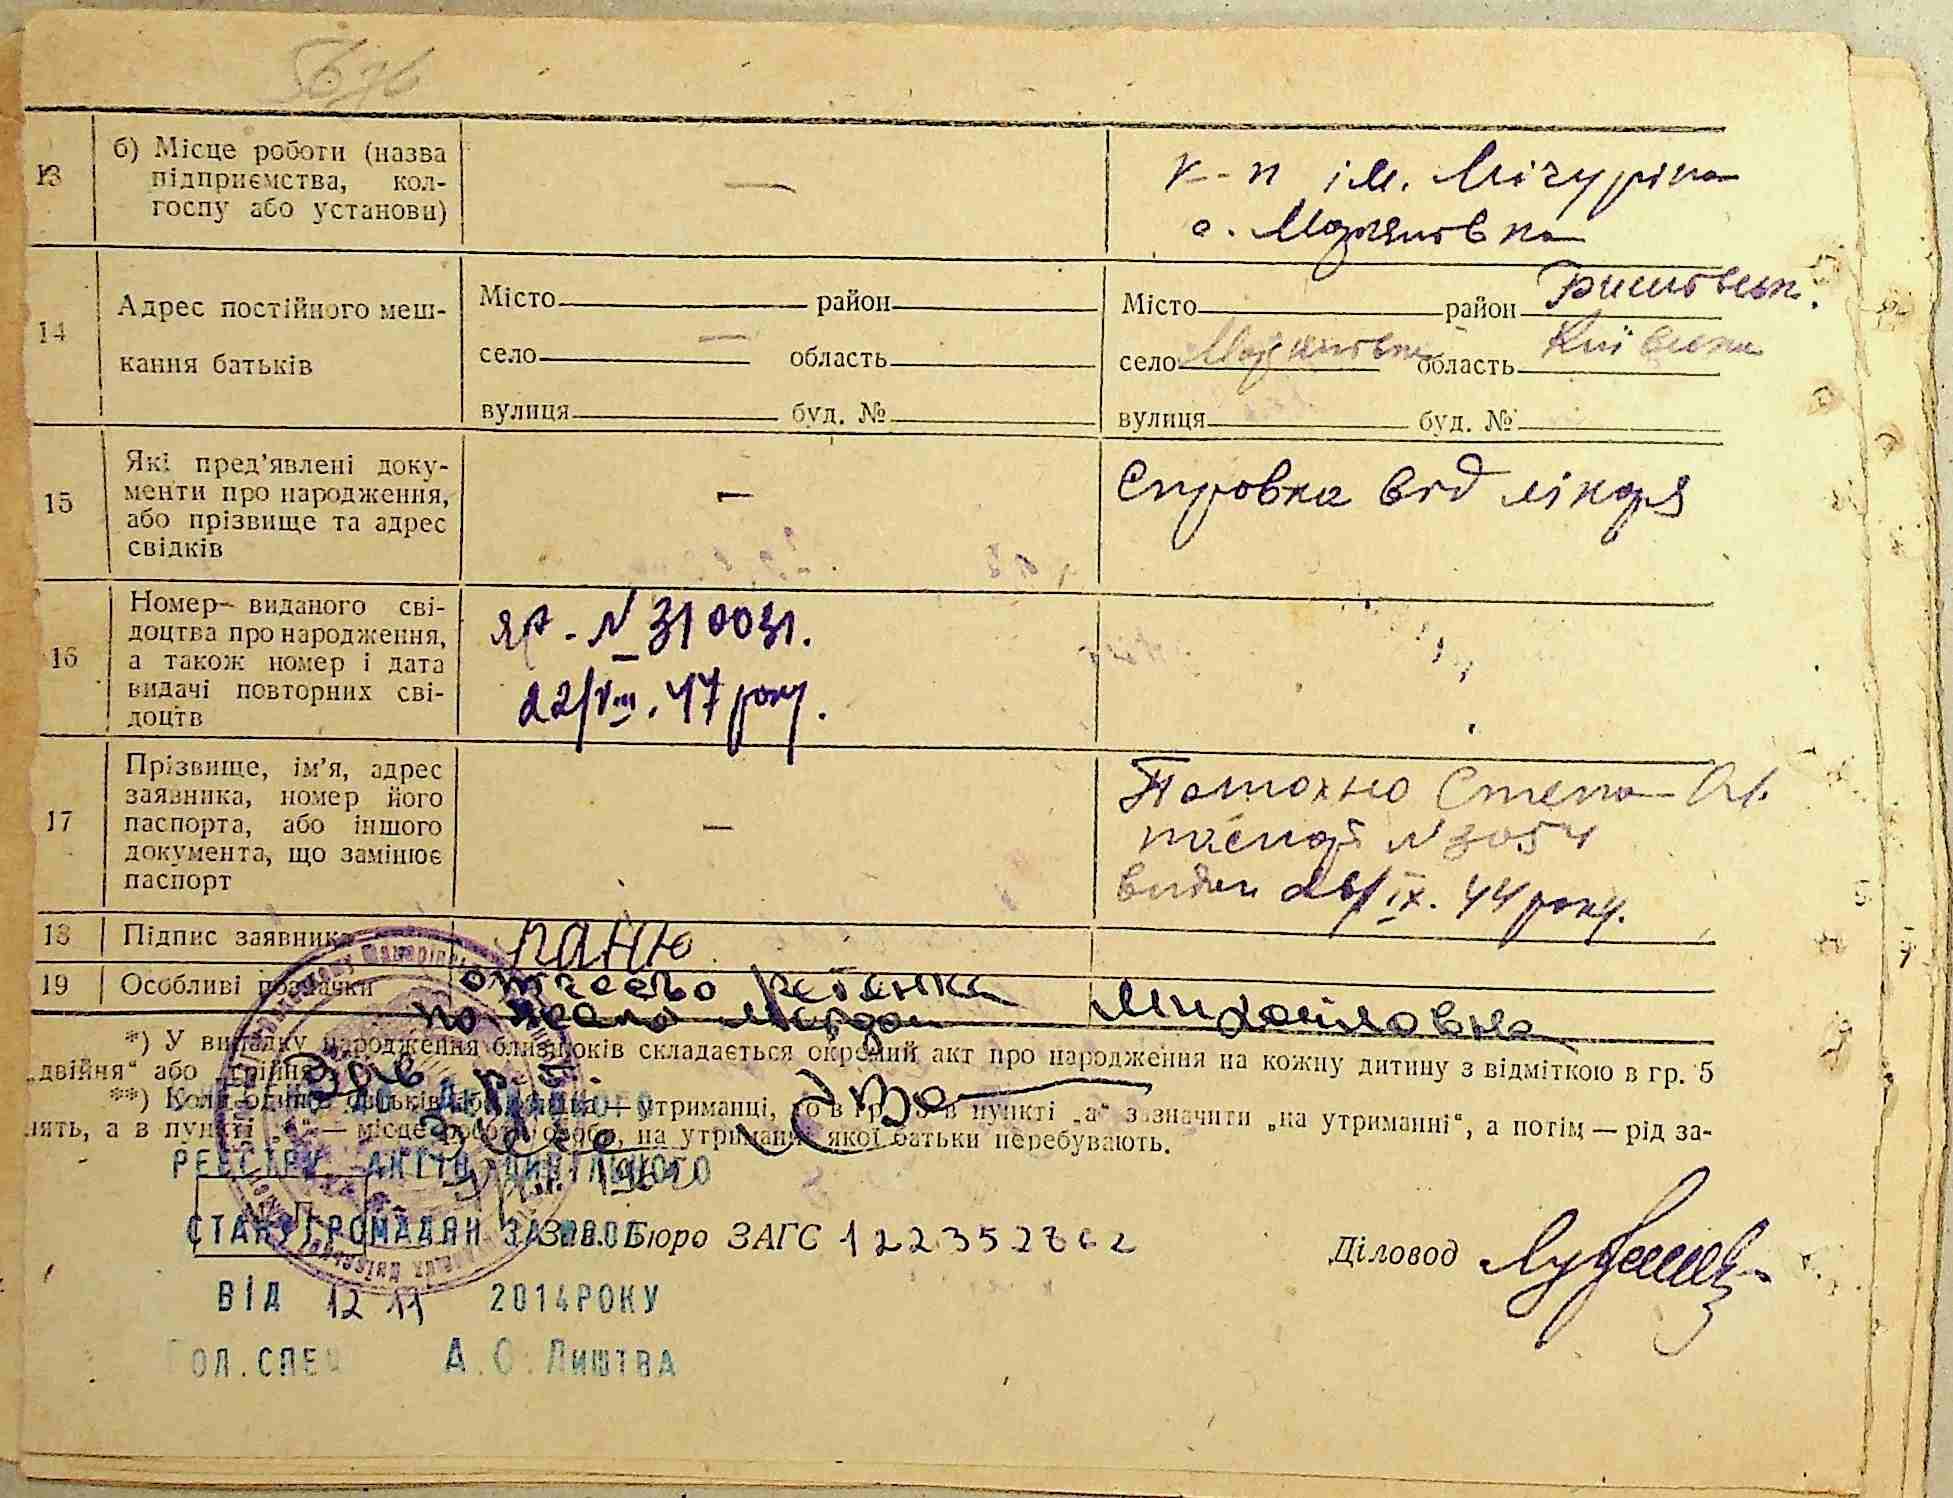 13
б) Місце роботи (назва
підприємства, кол-
госпу або установи)
—
к-п ім. Мічуріна
с. Мар'яновка
14
Адрес постійного меш-
кання батьків
Місто район
село — область
вулиця буд. №
Місто район
село область Київська
вулиця буд. №
15
Які пред'явлені доку-
менти про народження,
або прізвище та адрес
свідків
—
Справка від лікаря
16
Номер виданого сві-
доцтва про народження,
а також номер і дата
видачі повторних сві-
доцтв
№ 310031.
22/VIII. 47 року.
17
Прізвище, ім'я, адрес
заявника, номер його
паспорта, або іншого
документа, що замінює
паспорт
—
паспорт № 3054
видан 26/IX. 44 року.
18
Підпис заявника
19
Особливі позначки
отчество ребенка
Михайловна
*) У випадку народження близнюків складається окремий акт про народження на кожну дитину з відміткою в гр. 5
„двійня“ або „трійня“
**) Коли один з батьків або — утриманці, то в гр. в пункті „а“ зазначити „на утриманні“, а потім — рід за-
нять, а в пункті — місце роботи особи, на утриманні якої батьки перебувають.
ДО ДЕРЖАВНОГО
РЕЄСТРУ АКТІВ ЦИВІЛЬНОГО
СТАНУ ГРОМАДЯН ЗА №
Зав. Бюро ЗАГС 122352762
Діловод
ВІД 12 11 2014РОКУ
ГОЛ.СПЕЦ А.О.ЛИШТВА